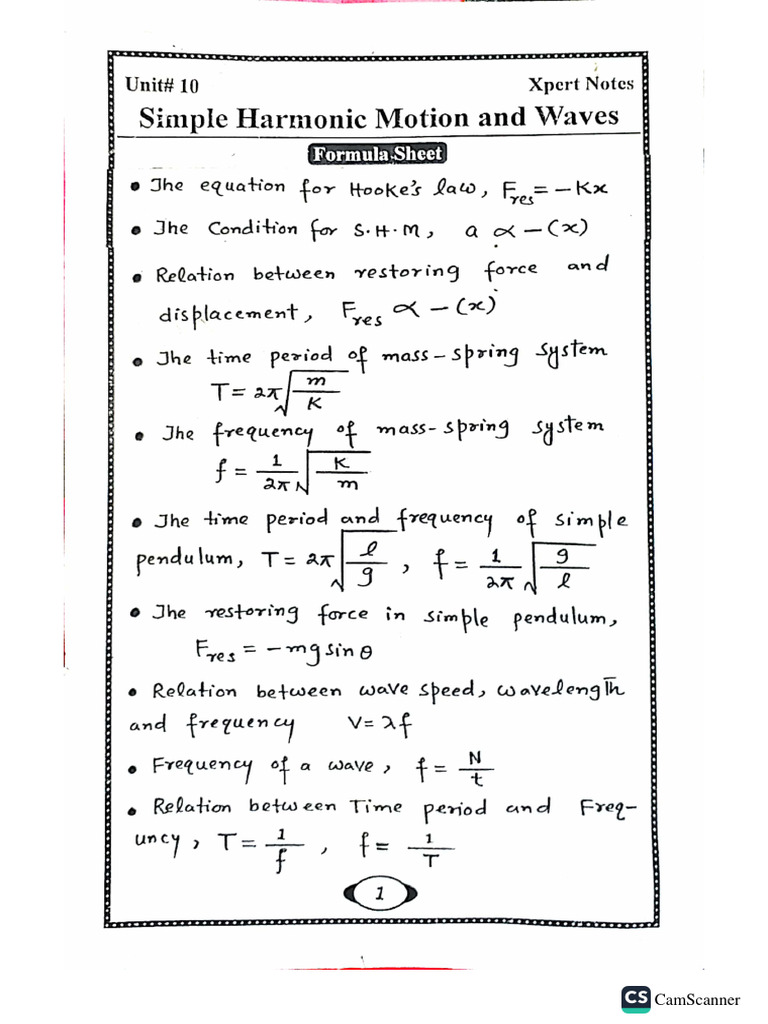 Unit# 10 Xpert Notes
Simple Harmonic Motion and Waves
Formula Sheet
• The equation for Hooke's law, F_res = -Kx
• The Condition for S.H.M, a ∝ -(x)
• Relation between restoring force and
displacement, F_res ∝ -(x)
• The time period of mass-spring system
T = 2π√(m/K)
• The frequency of mass-spring system
f = 1/2π √(K/m)
• The time period and frequency of simple
pendulum, T = 2π√(l/g), f = 1/2π √(g/l)
• The restoring force in simple pendulum,
F_res = -mg sin θ
• Relation between wave speed, wavelength
and frequency V = λf
• Frequency of a wave, f = N/t
• Relation between Time period and Freq-
uncy, T = 1/f, f = 1/T
1
CS CamScanner